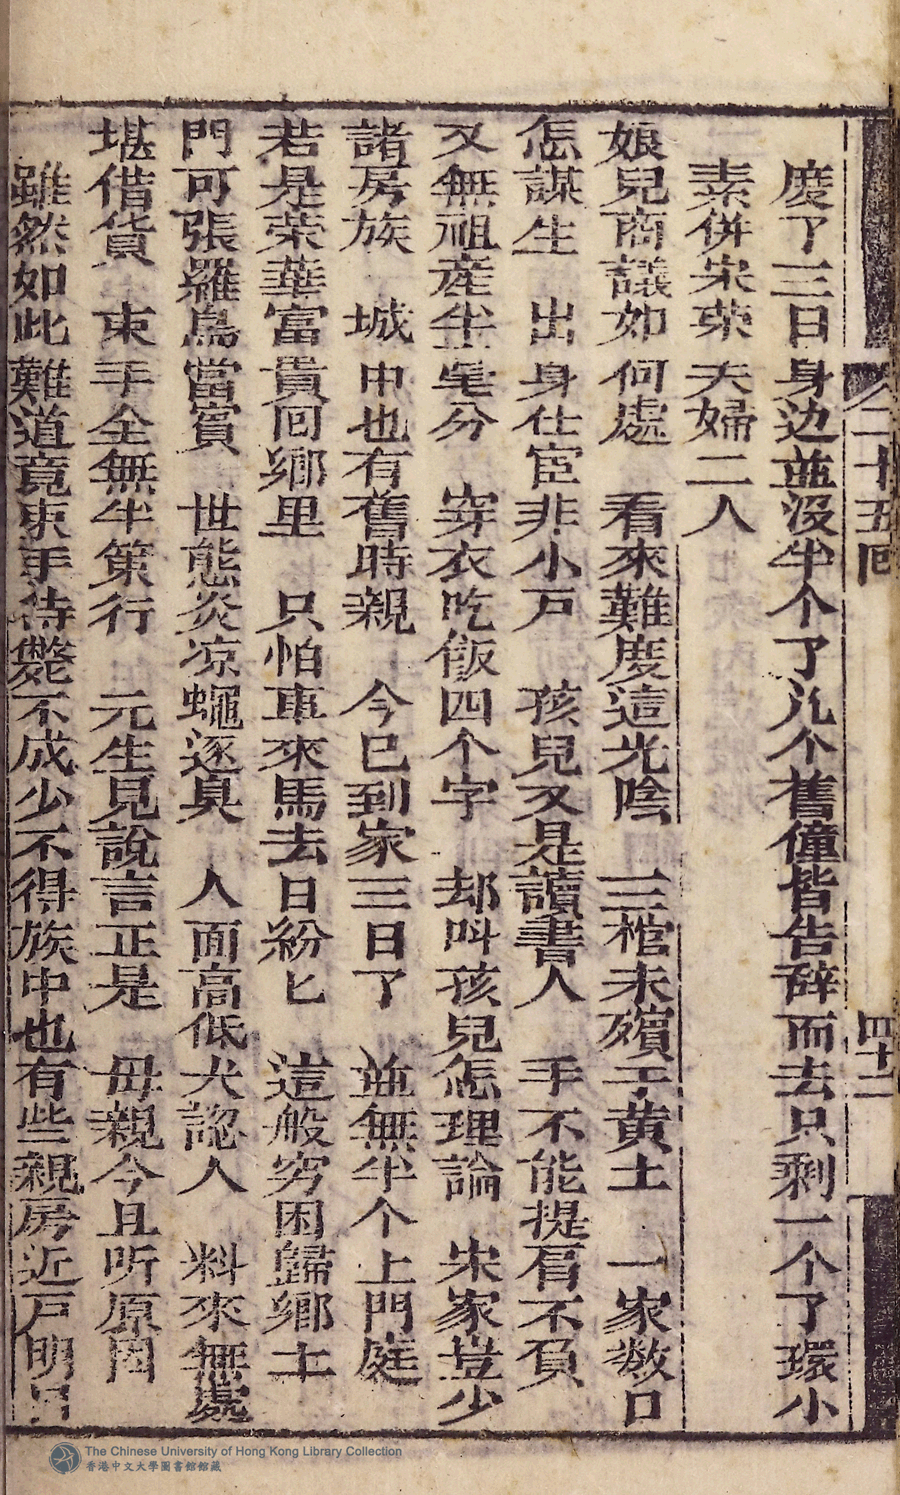 二十五回 四十二
度了三日身边並沒半个了凢个舊僮皆告辞而去只剩一个了環小
素併宋荣夫婦二人
娘兒商議如何處 看來難度這光陰 三棺未殯于黄土 一家数口
怎謀生 出身仕宦非小戸 孩兒又是讀書人 手不能提肩不負
又無祖產半毫分 穿衣吃飯四个字 却叫孩兒怎理論 宋家豈少
諸房族 城中也有舊時親 今已到家三日了 並無半个上門庭
若是荣華富貴囘鄉里 只怕車來馬去日紛匕 這般穷困歸鄉土
門可張羅鳥當賓 世態炎凉蠅逐臭 人面高低犬認人 料來無處
堪借貸 束手全無半策行 元生見說言正是 毋親今且听原因
雖然如此難道竟束手待斃不成少不得族中也有些親房近戸明日
The Chinese University of Hong Kong Library Collection
香港中文大學圖書館館藏